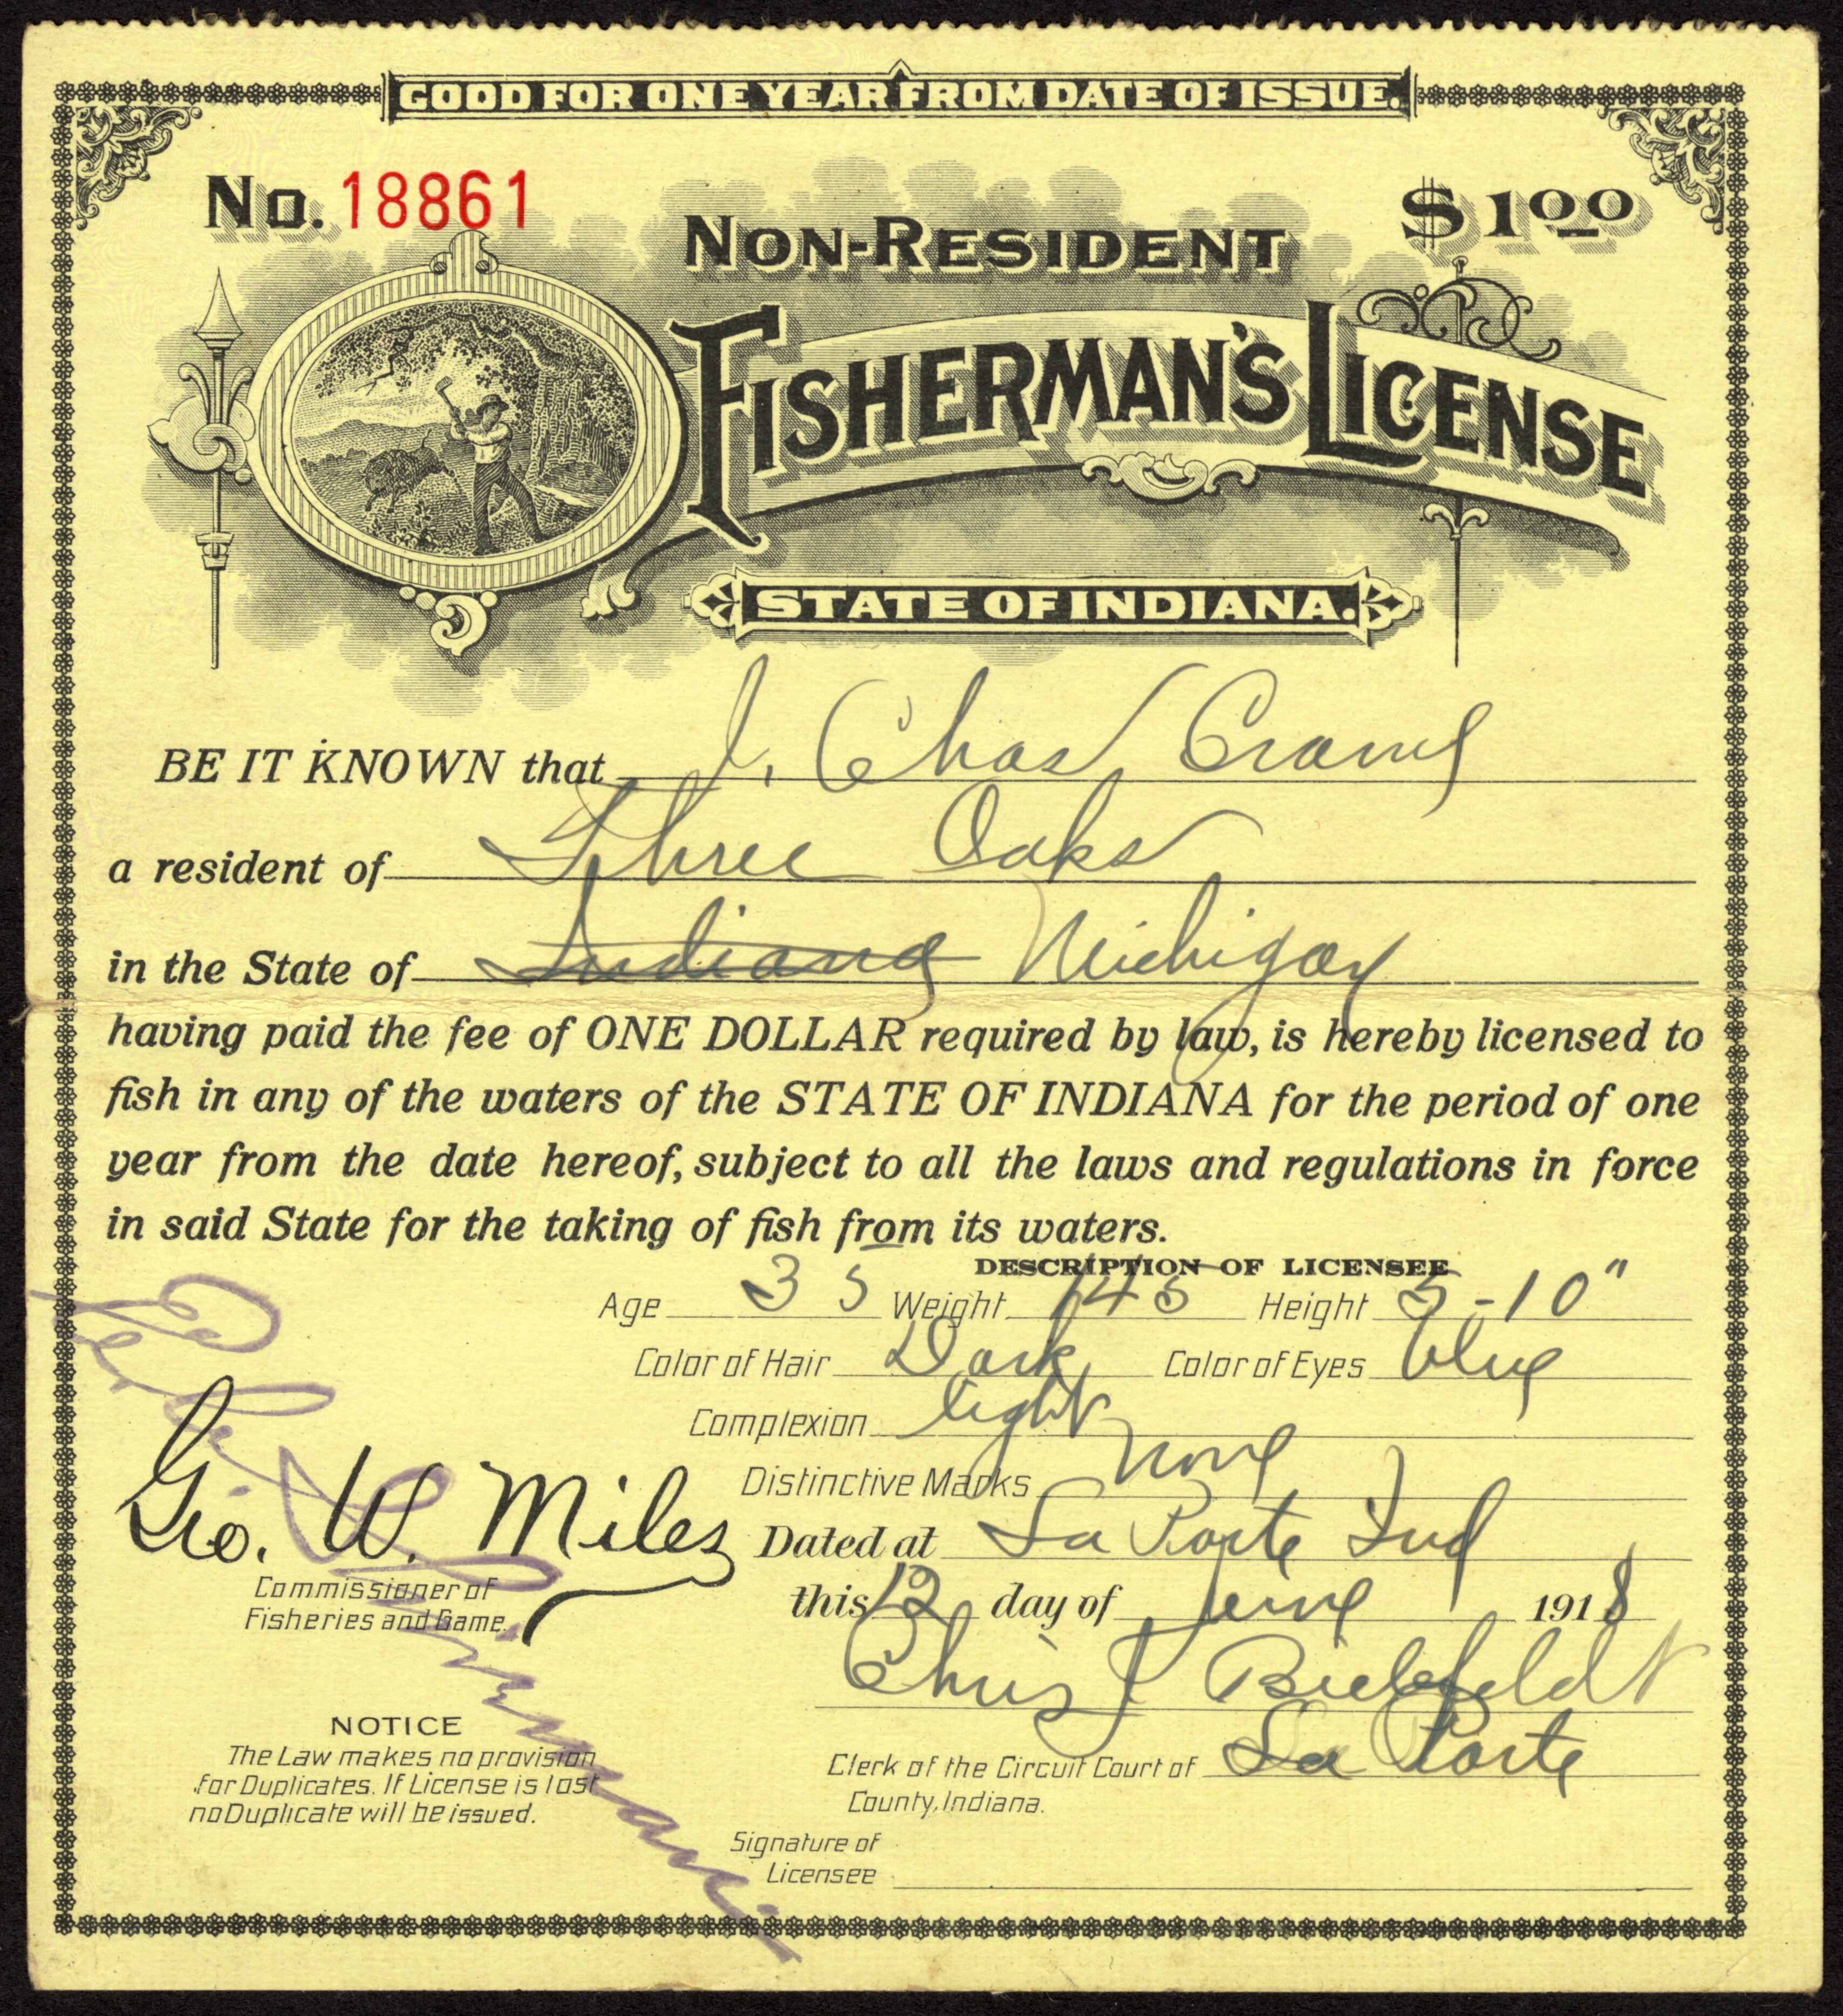 GOOD FOR ONE YEAR FROM DATE OF ISSUE.
No. 18861
$1.00
NON-RESIDENT
FISHERMAN'S LICENSE
STATE OF INDIANA.
BE IT KNOWN that J. Chas
a resident of Three Oaks
in the State of Indiana Michigan
having paid the fee of ONE DOLLAR required by law, is hereby licensed to
fish in any of the waters of the STATE OF INDIANA for the period of one
year from the date hereof, subject to all the laws and regulations in force
in said State for the taking of fish from its waters.
DESCRIPTION OF LICENSEE
Age 35 Weight 145 Height 5-10"
Color of Hair Dark Color of Eyes blue
Complexion light
Distinctive Marks none
Geo. W. Miles
Commissioner of
Fisheries and Game.
Dated at La Porte Ind
this 12 day of June 1918
Chris J Bielefeldt
Clerk of the Circuit Court of La Porte
County, Indiana.
NOTICE
The Law makes no provision
for Duplicates. If License is lost
no Duplicate will be issued.
Signature of
Licensee